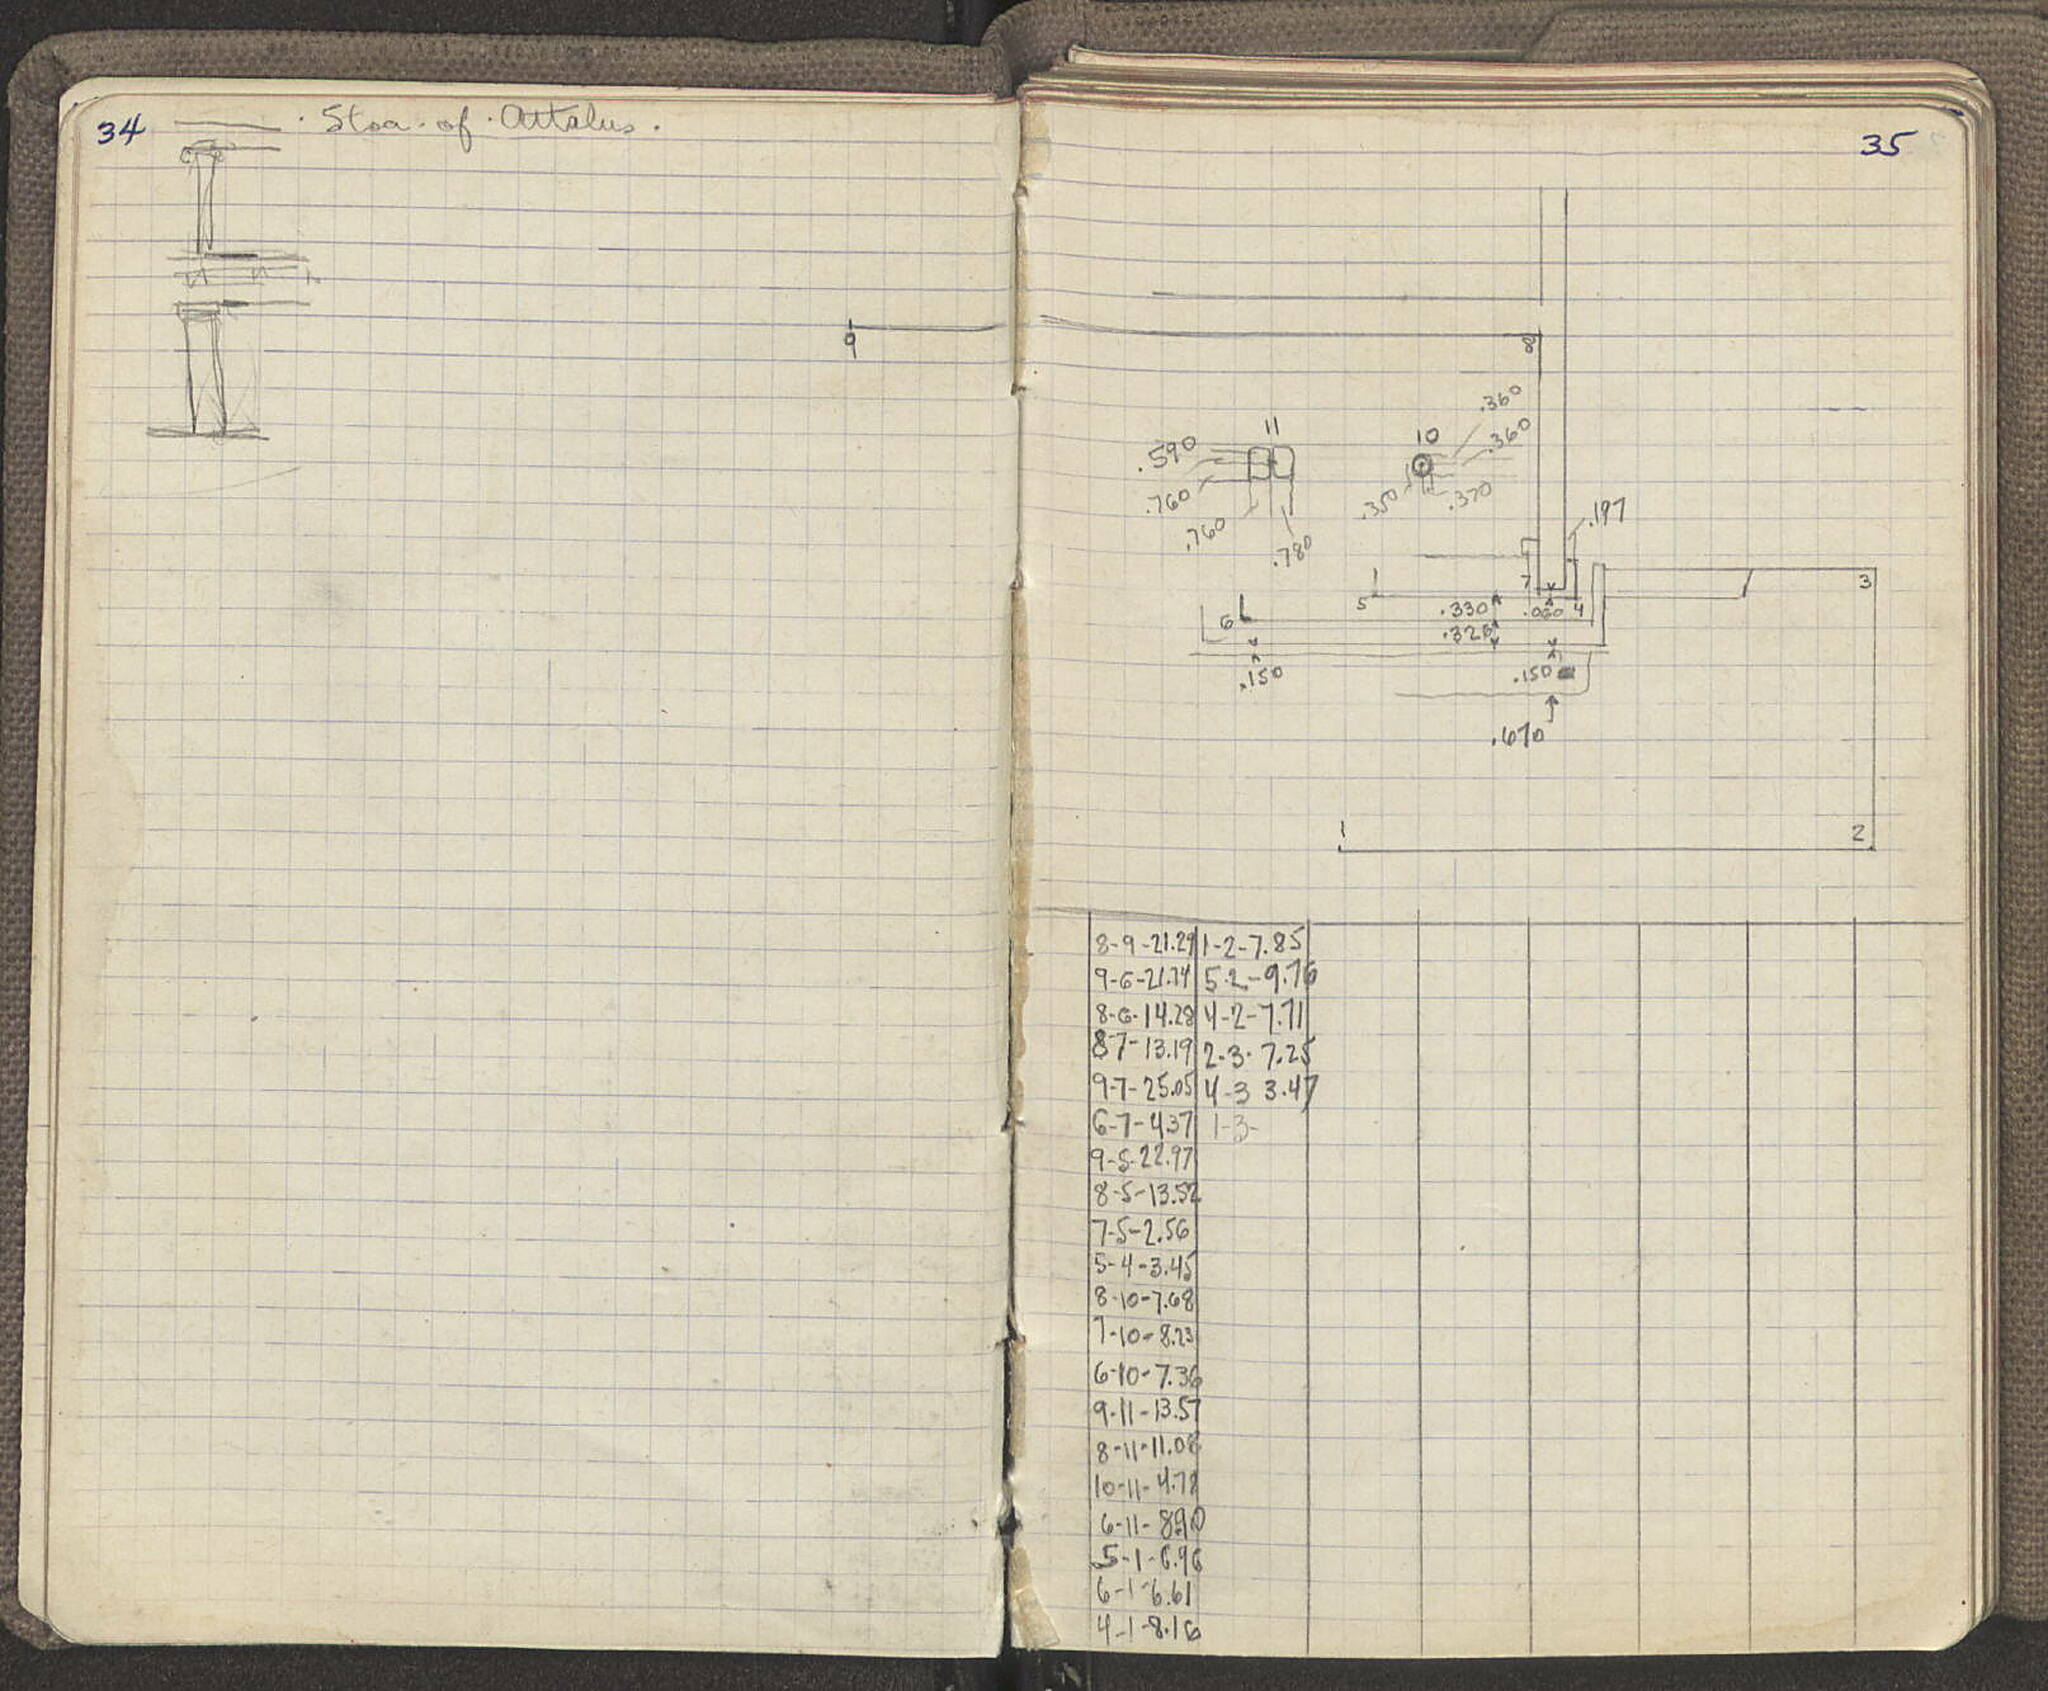 34
Stoa of Attalus.
9
35
8
.360
11
10
.360
.590
.760
.350
.370
.760
.197
.780
7
3
5
.330
.060
4
6
.326
.150
.150
.670
1
2
8-9-21.29 1-2-7.85
9-6-21.74 5-2-9.76
8-6-14.28 4-2-7.71
8 7-13.19 2-3-7.25
9-7-25.05 4-3 3.47
6-7-4.37 1-3-
9-5-22.97
8-5-13.52
7-5-2.56
5-4-3.45
8-10-7.68
7-10-8.23
6-10-7.36
9-11-13.57
8-11-11.08
10-11-4.78
6-11-8.90
5-1-6.96
6-1-6.61
4-1-8.16